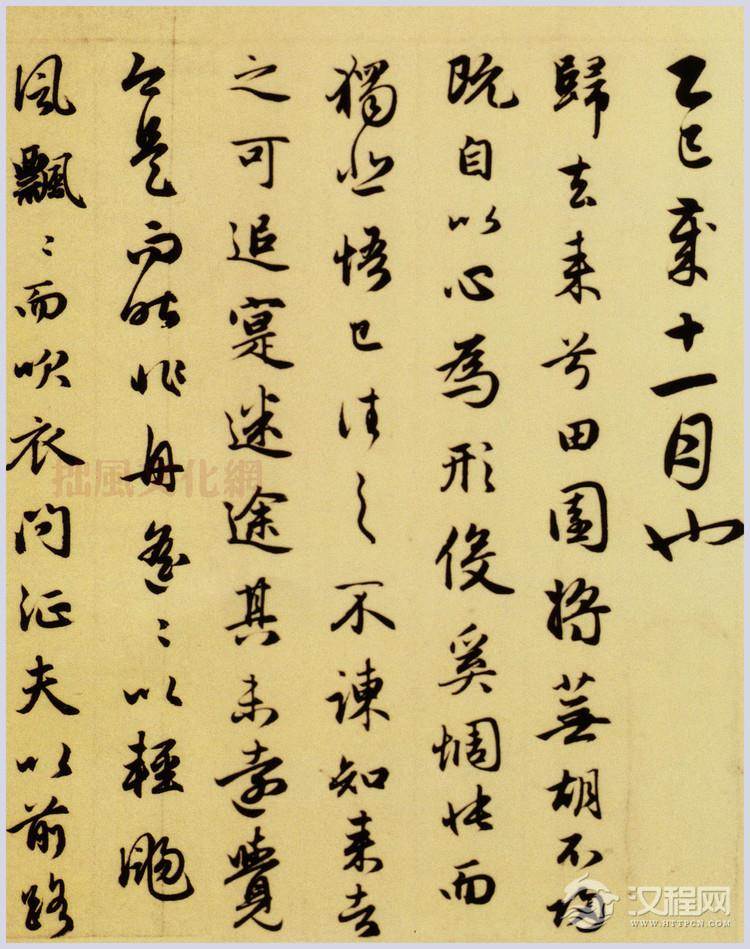 乙巳歲十一月也
歸去来兮田園將蕪胡不歸
既自以心為形役奚惆悵而
獨悲悟已往之不諫知来者
之可追寔迷途其未遠覺
今是而昨非舟遙〻以輕颺
風飄〻而吹衣問征夫以前路
拙風文化網
汉程网
WWW.HTTPCN.COM